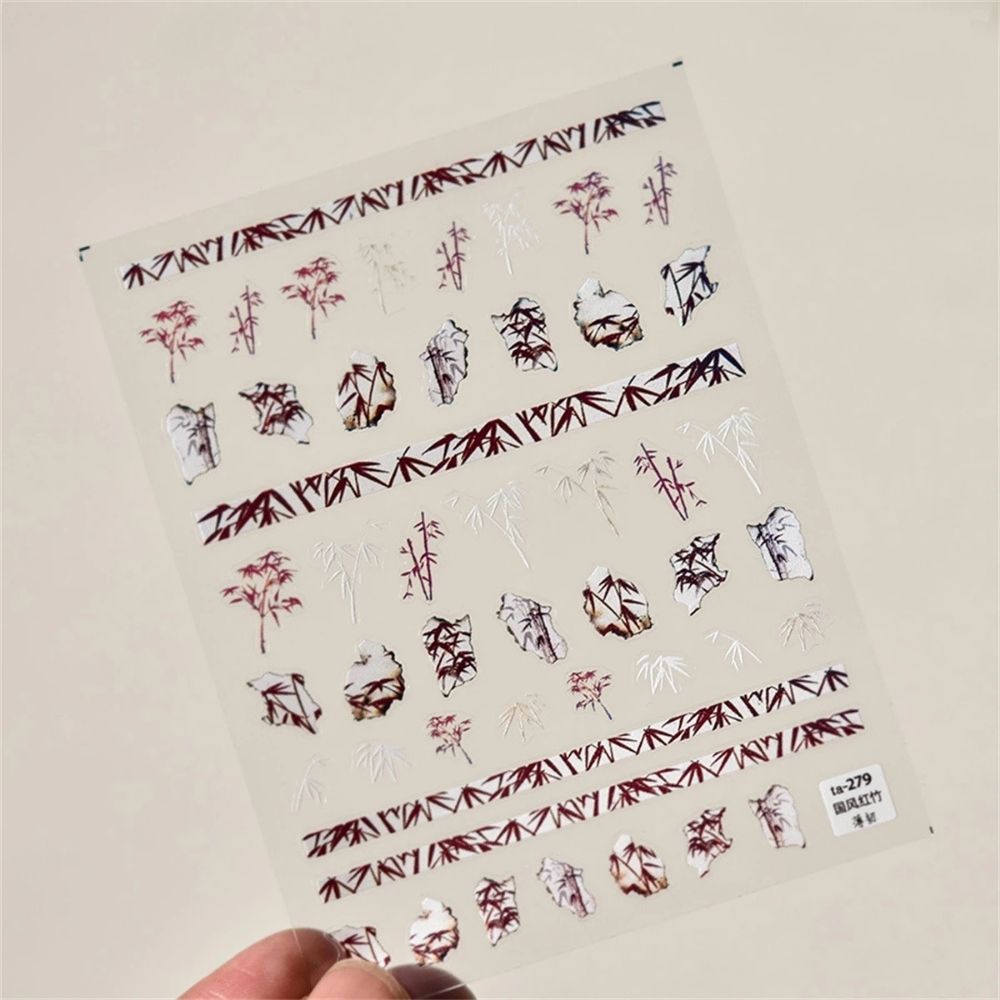 ta-279
国风红竹
薄韧